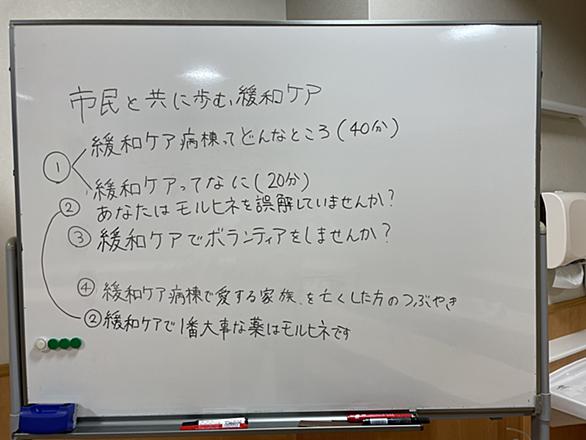 市民と共に歩む緩和ケア
① 緩和ケア病棟ってどんなところ(40分)
緩和ケアってなに(20分)
② あなたはモルヒネを誤解していませんか?
③ 緩和ケアでボランティアをしませんか?
④ 緩和ケア病棟で愛する家族を亡くした方のつぶやき
② 緩和ケアで1番大事な薬はモルヒネです